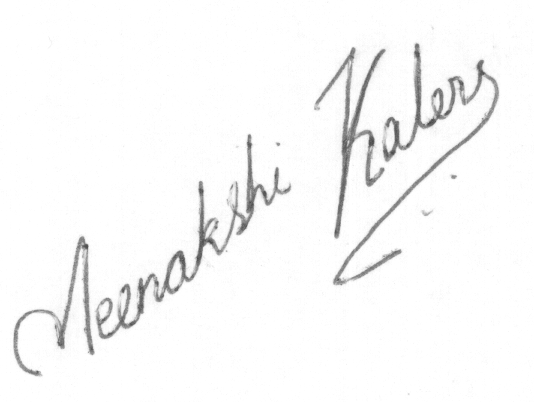 Meenakshi Kalery